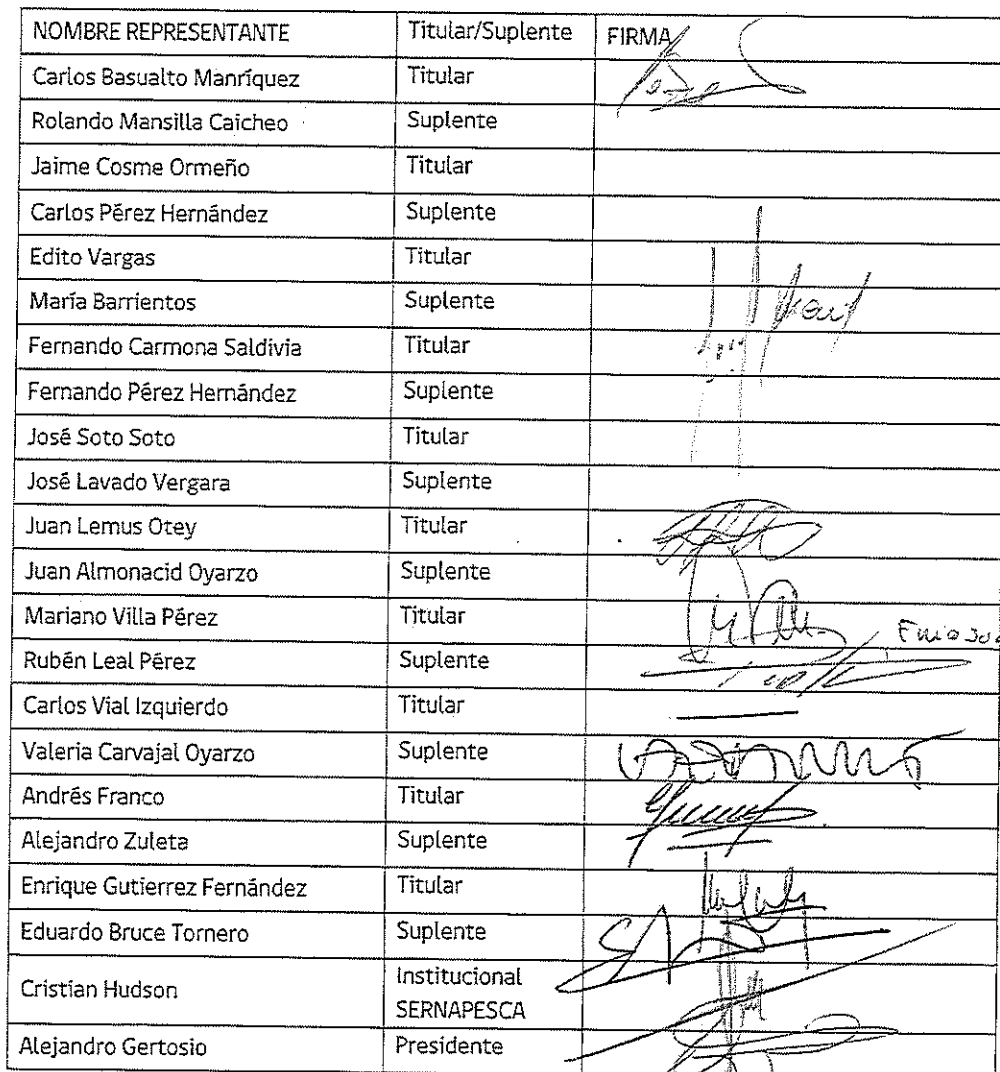 NOMBRE REPRESENTANTE Titular/Suplente FIRMA
Carlos Basualto Manríquez Titular
Rolando Mansilla Caicheo Suplente
Jaime Cosme Ormeño Titular
Carlos Pérez Hernández Suplente
Edito Vargas Titular
María Barrientos Suplente
Fernando Carmona Saldivia Titular
Fernando Pérez Hernández Suplente
José Soto Soto Titular
José Lavado Vergara Suplente
Juan Lemus Otey Titular
Juan Almonacid Oyarzo Suplente
Mariano Villa Pérez Titular
Rubén Leal Pérez Suplente
Carlos Vial Izquierdo Titular
Valeria Carvajal Oyarzo Suplente
Andrés Franco Titular
Alejandro Zuleta Suplente
Enrique Gutierrez Fernández Titular
Eduardo Bruce Tornero Suplente
Cristian Hudson Institucional
SERNAPESCA
Alejandro Gertosio Presidente